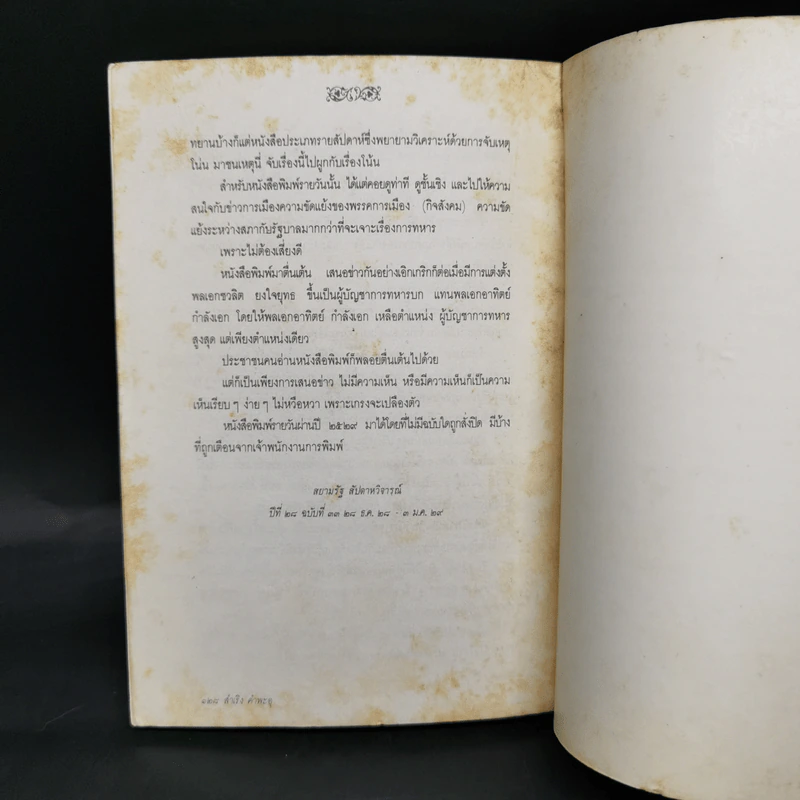 ทยานบ้างก็แต่หนังสือประเภทรายสัปดาห์ซึ่งพยายามวิเคราะห์ด้วยการจับเหตุ
โน่น มาชนเหตุนี่ จับเรื่องนี้ไปผูกกับเรื่องโน้น
สำหรับหนังสือพิมพ์รายวันนั้น ได้แต่คอยดูท่าที ดูชั้นเชิง และไปให้ความ
สนใจกับข่าวการเมืองความขัดแย้งของพรรคการเมือง (กิจสังคม) ความขัด
แย้งระหว่างสภากับรัฐบาลมากกว่าที่จะเจาะเรื่องการทหาร
เพราะไม่ต้องเสี่ยงดี
หนังสือพิมพ์มาตื่นเต้น เสนอข่าวกันอย่างเอิกเกริกก็ต่อเมื่อมีการแต่งตั้ง
พลเอกชวลิต ยงใจยุทธ ขึ้นเป็นผู้บัญชาการทหารบก แทนพลเอกอาทิตย์
กำลังเอก โดยให้พลเอกอาทิตย์ กำลังเอก เหลือตำแหน่ง ผู้บัญชาการทหาร
สูงสุด แต่เพียงตำแหน่งเดียว
ประชาชนคนอ่านหนังสือพิมพ์ก็พลอยตื่นเต้นไปด้วย
แต่ก็เป็นเพียงการเสนอข่าว ไม่มีความเห็น หรือมีความเห็นก็เป็นความ
เห็นเรียบ ๆ ง่าย ๆ ไม่หวือหวา เพราะเกรงจะเปลืองตัว
หนังสือพิมพ์รายวันผ่านปี ๒๕๒๙ มาได้โดยที่ไม่มีฉบับใดถูกสั่งปิด มีบ้าง
ที่ถูกเตือนจากเจ้าพนักงานการพิมพ์
สยามรัฐ สัปดาหวิจารณ์
ปีที่ ๒๘ ฉบับที่ ๓๓ ๒๘ ธ.ค. ๒๘ - ๓ ม.ค. ๒๙
๑๒๘ สำเริง คำพะอุ